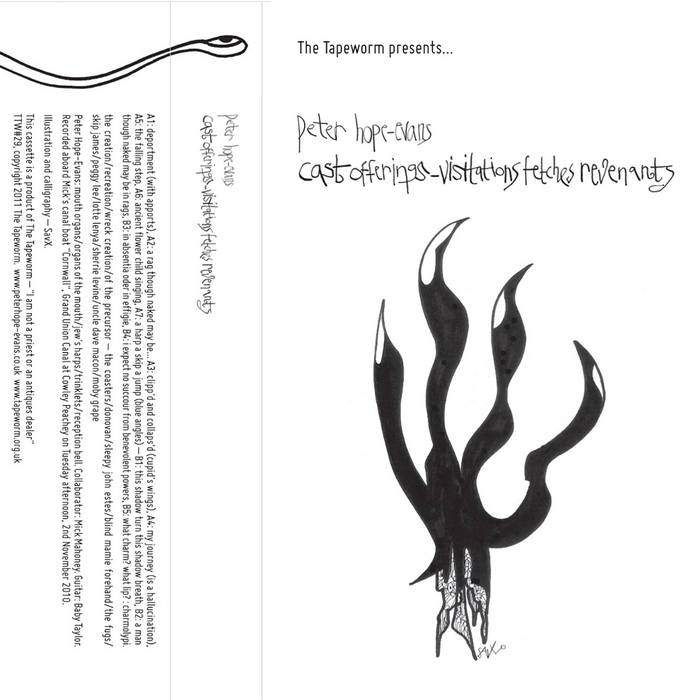 The Tapeworm presents...
peter hope-evans
cast offerings-visitations fetches revenants
SavX
peter hope-evans
cast offerings-visitations fetches revenants
A1: deportment (with apports), A2: a rag though naked may be... A3: clipp'd and collaps'd (cupid's wings), A4: my journey (is a hallucination),
A5: the falling step, A6: ancient flower child singing, A7: a harp a skip a jump (blue angles) — B1: this shadow turn this shadow breath, B2: a man
though naked may be in rags, B3: in absentia oder in effigie, B4: i expect no succour from benevolent powers, B5: what charm? what lip? : charmolypi.
the creation/recreation/wreck creation/of the precursor — the coasters/donovan/sleepy john estes/blind mamie forehand/the fugs/
skip james/peggy lee/lotte lenya/sherrie levine/uncle dave macon/moby grape
Peter Hope-Evans: mouth organs/organs of the mouth/jew's harps/trinklets/reception bell. Collaborator: Mick Mahoney. Guitar: Baby Taylor.
Recorded aboard Mick's canal boat "Cornwall", Grand Union Canal at Cowley Peachey on Tuesday afternoon, 2nd November 2010.
Illustration and calligraphy — SavX.
This cassette is a product of The Tapeworm — "I am not a priest or an antiques dealer"
TTW#29, copyright 2011 The Tapeworm. www.peterhope-evans.co.uk www.tapeworm.org.uk